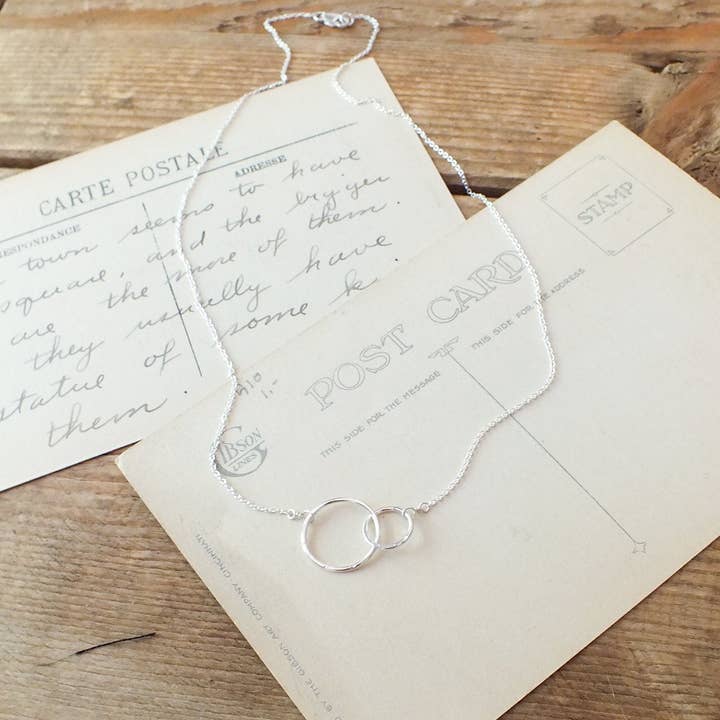 CARTE POSTALE
ADRESSE
town seems to have
square, and the bigger
are the more of them.
they usually have
statue of some
them.
STAMP
POST CARD
THIS SIDE FOR THE MESSAGE
THIS SIDE FOR THE ADDRESS
910
1.-
GIBSON
LINES
BY THE GIBSON ART COMPANY, CINCINNATI